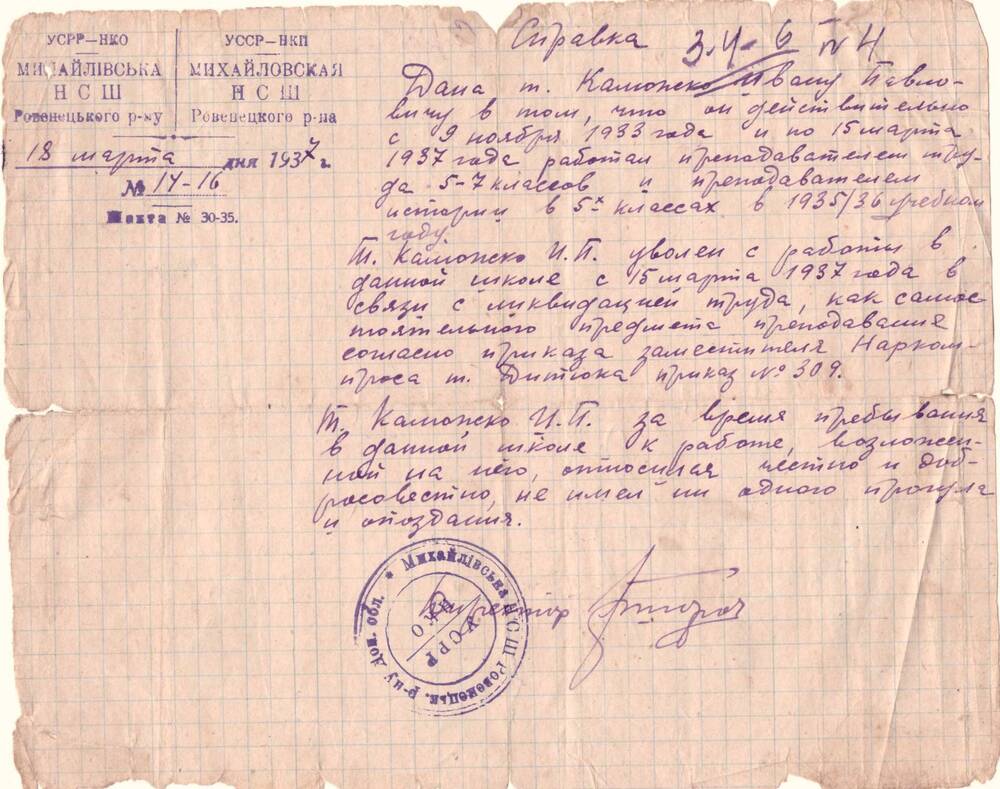 УСРР–НКО
МИХАЙЛІВСЬКА
Н С Ш
Ровенецького р-ну
УССР–НКП
МИХАЙЛОВСКАЯ
Н С Ш
Ровенецкого р-на
18 марта дня 1937 г.
№ 14-16
Шахта № 30-35.
Справка
Дана т. Камонско Ивану Павло-
вичу в том, что он действительно
с 9 ноября 1933 года и по 15 марта
1937 года работал преподавателем тру-
да 5-7 классов и преподавателем
истории в 5х классах в 1935/36 учебном
году.
Т. Камонско И.П. уволен с работы в
данной школе с 15 марта 1937 года в
связи с ликвидацией труда, как самос
тоятельного предмета преподавания
согласно приказа заместителя Нарком-
проса т. приказ № 309.
Т. Камонско И.П. за время пребывания
в данной школе к работе, возложен-
ной на него, относился честно и доб-
росовестно, не имел ни одного прогула
и опоздания.
Директор
* Михайлівська НСШ Ровенецьк. р-ну Дон. обл.
УСРР
НКО